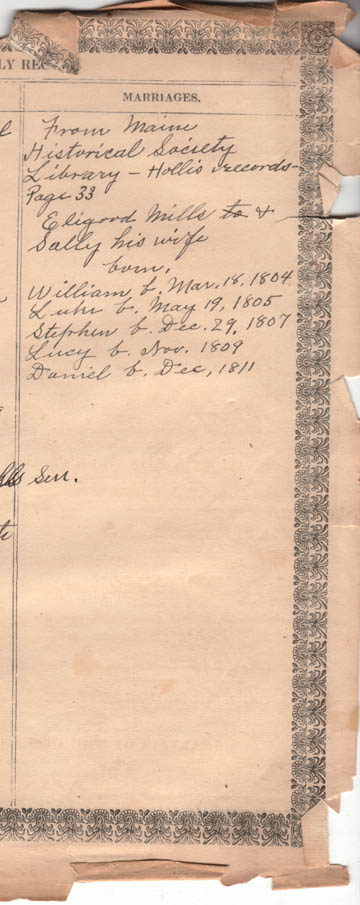 LY REC
MARRIAGES.
From Maine
Historical Society
Library - Hollis records-
Page 33
Eligood Mills to &
Sally his wife
born.
William b. Mar. 18, 1804
b. May 19, 1805
Stephen b. Dec. 29, 1807
Lucy b. Nov. 1809
Daniel b. Dec, 1811
lls Sen.